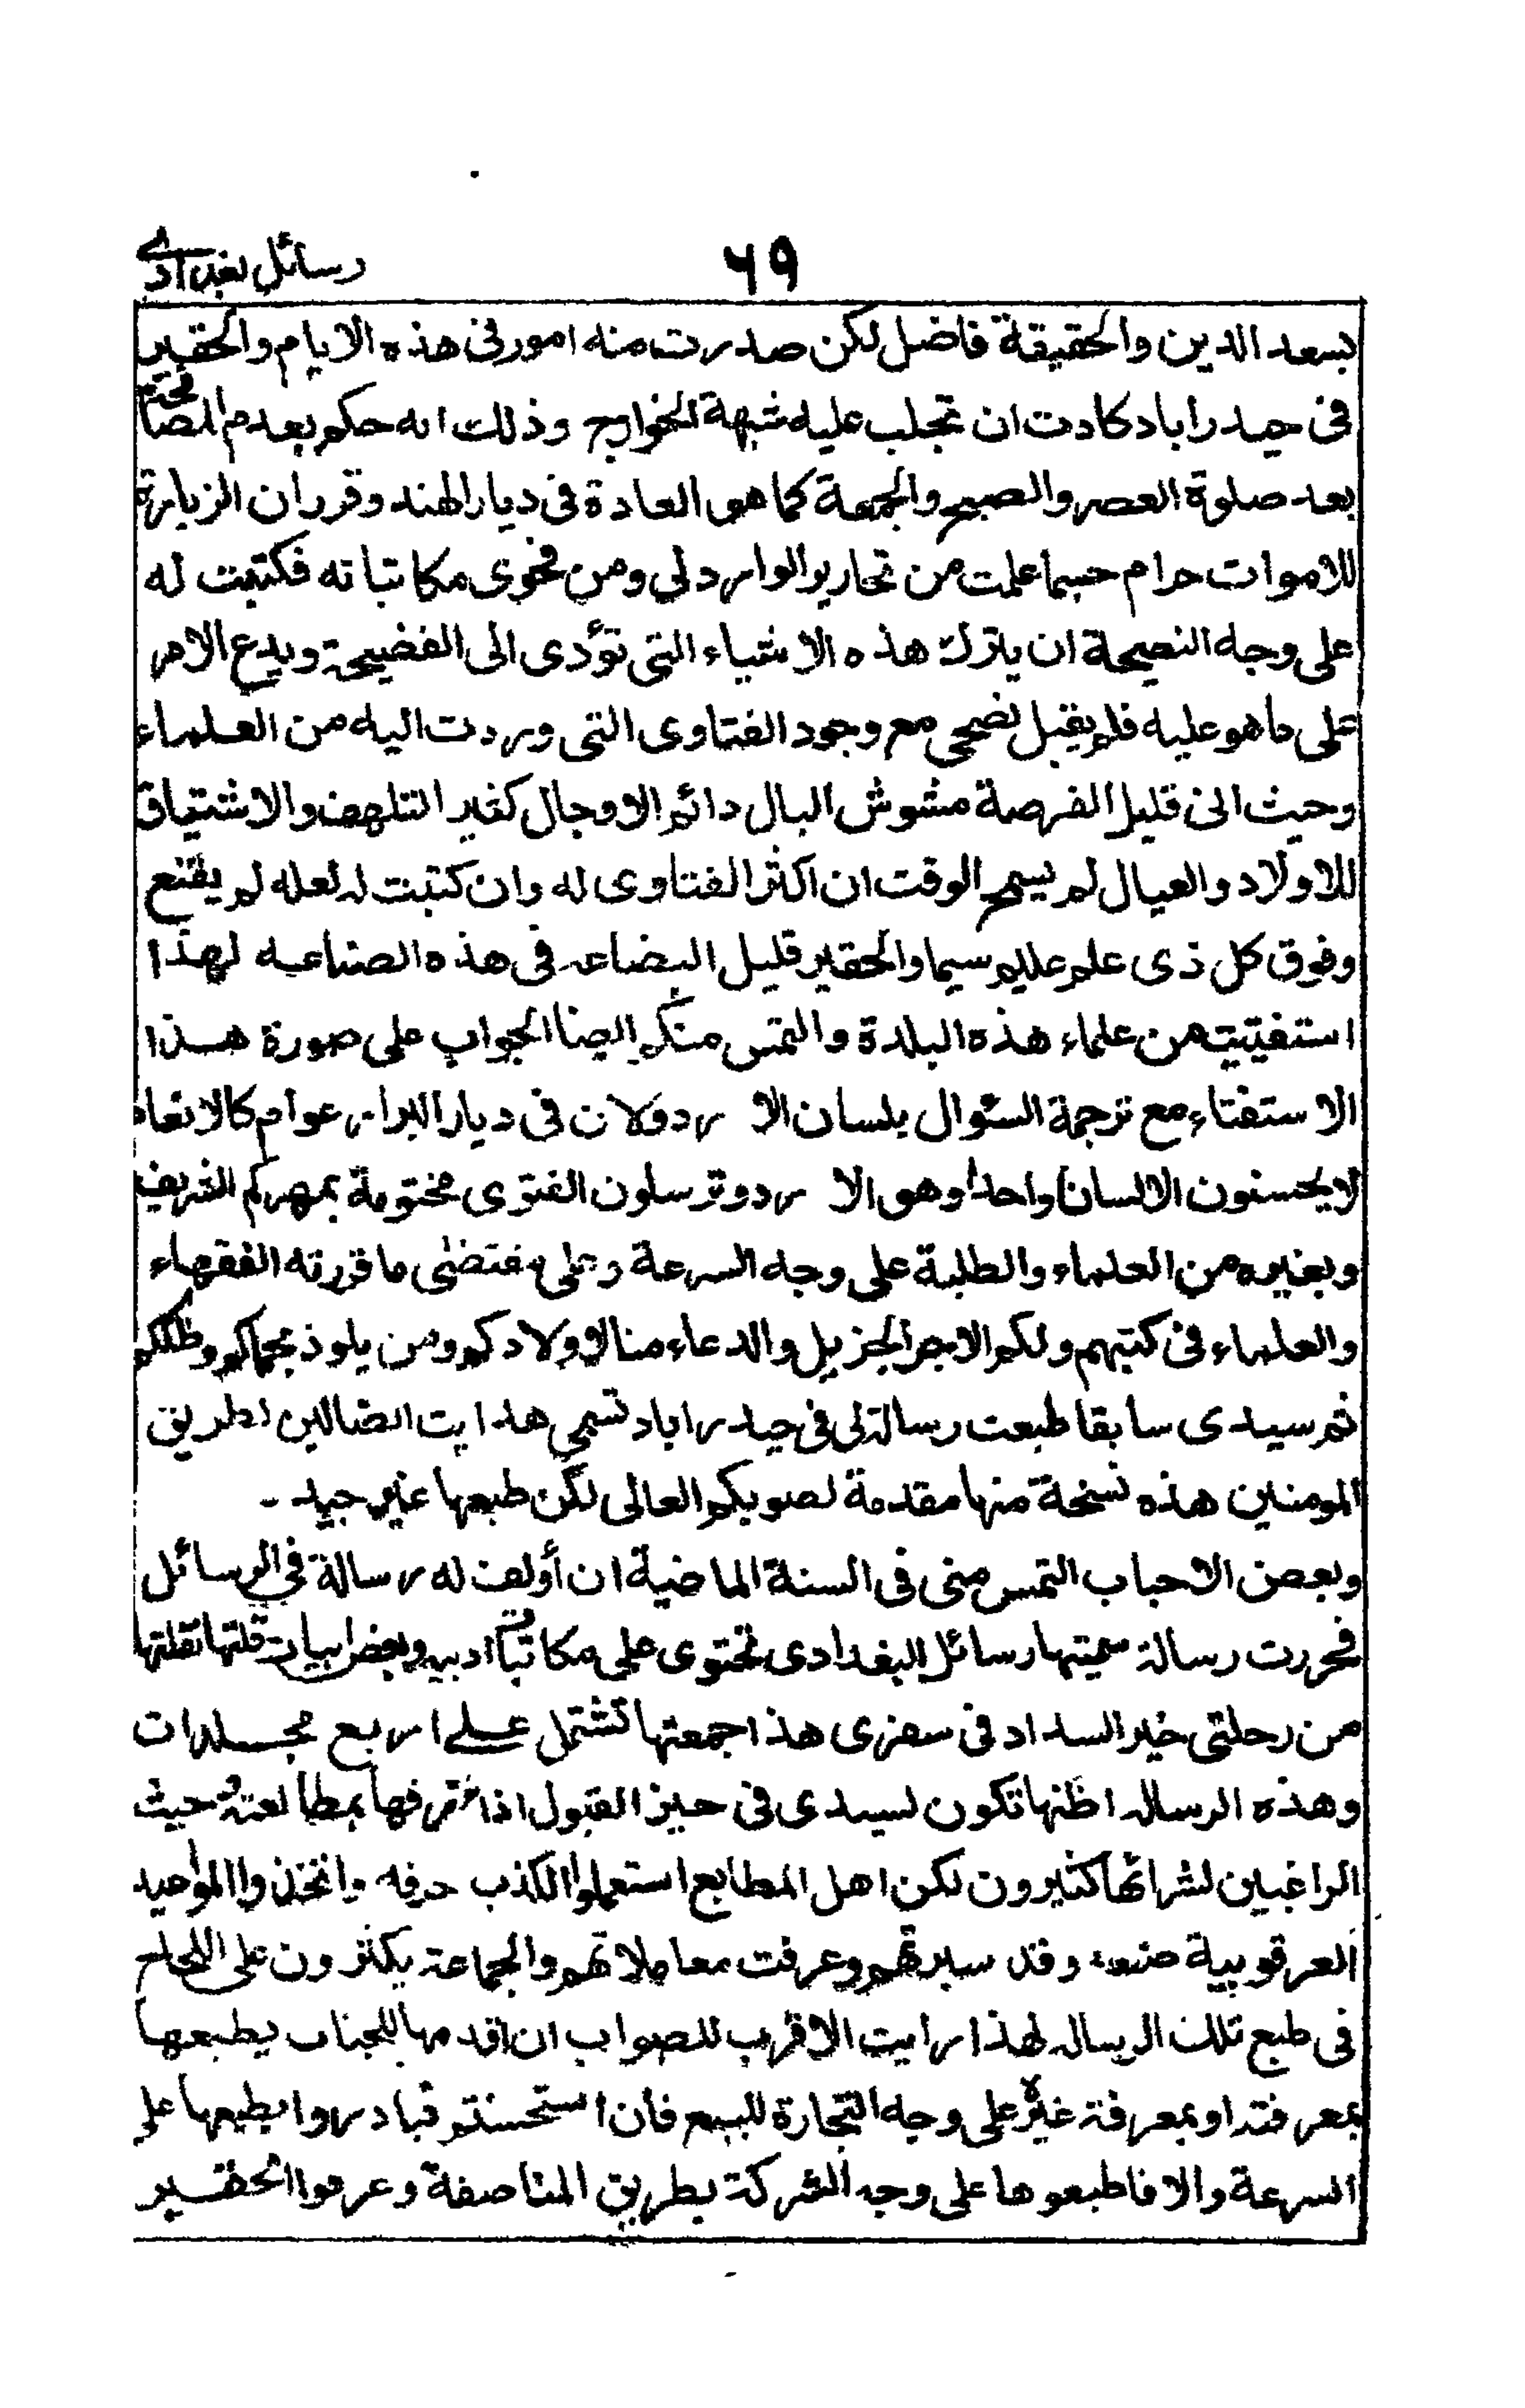 رسائل بغدادی
٦٩
بسعد الدين والحقيقة فاضل لكن صدرت منه امور فى هذه الايام والحقير
فى حيدراباد كادت ان تجلب عليه شبهة الخوارج وذلك انه حكم بعدم المصافحة
بعد صلوة العصر والصبح والجمعة كما هو العادة فى ديار الهند وقرر ان الزيارة
للاموات حرام حسبما علمت من تحارير الوارد لى ومن فحوى مكاتباته فكتبت له
على وجه النصيحة ان يترك هذه الاشياء التى تؤدى الى الفضيحة ويدع الامر
على ما هو عليه فلم يقبل نصحى مع وجود الفتاوى التى وردت اليه من العلماء
وحيث انى قليل الفرصة مشوش البال دائم الاوجال كغير التلهف والاشتياق
للاولاد والعيال لم يسمح الوقت ان اكثر الفتاوى له وان كتبت له لعله لم يقنع
وفوق كل ذى علم عليم سيما والحقير قليل البضاعه فى هذه الصناعه لهذا
استفتيت من علماء هذه البلدة والتمس منكم ايضا الجواب على صورة هذا
الاستفتاء مع ترجمة السئوال بلسان الاردو لان فى ديار البرار عوام كالانعام
لا يحسنون الا لسانا واحدا وهو الاردو وترسلون الفتوى مختومة بمهركم الشريف
وبغيره من العلماء والطلبة على وجه السرعة وعلى مقتضى ما قررته الفقهاء
والعلماء فى كتبهم ولكم الاجر الجزيل والدعاء منا لاولادكم ومن يلوذ بحماكم وظلكم
ثم سيدى سابقا طبعت رسالة لى فى حيدراباد تسمى هدايت الضالين لطريق
المومنين هذه نسخة منها مقدمة لصوبكم العالى لكن طبعها غير جيد -
وبعض الاحباب التمس منى فى السنة الماضية ان أولف له رسالة فى الرسائل
فحررت رسالة سميتها رسائل البغدادى تحتوى على مكاتبات ادبيه وبعض ابيات قلتها نقلتها
من رحلتى خير السداد فى سفرى هذا جمعتها تشتمل على اربع مجلدات
وهذه الرساله اظنها تكون لسيدى فى حيز القبول اذا شرفها بمطالعته وحيث
الراغبين لشرائها كثيرون لكن اهل المطابع استعملوا الكذب حرفه واتخذوا المواعيد
العرقوبية صنعه وقد سبرتهم وعرفت معاملاتهم والجماعة يكثرون على اللجاج
فى طبع تلك الرساله لهذا رايت الاقرب للصواب ان اقدمها للجناب يطبعها
بمعرفته او بمعرفة غيره على وجه التجارة للبيع فان استحسنتم فبادروا بطبعها على
السرعة والا فاطبعوها على وجه الشركة بطريق المناصفة وعرفوا الحقير